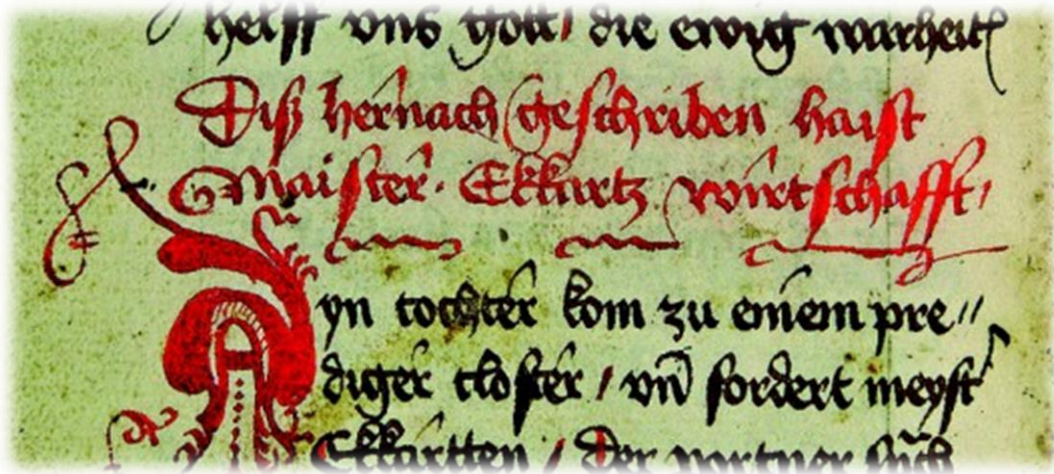 helff vns gott / die ewig warheit
Diß hernach geschriben haist
Maister · Ekkartz wirtschafft /
yn tochter kom zu einem pre//
diger closter / vn̄ fordert meystr
Ekkartten / Der portner